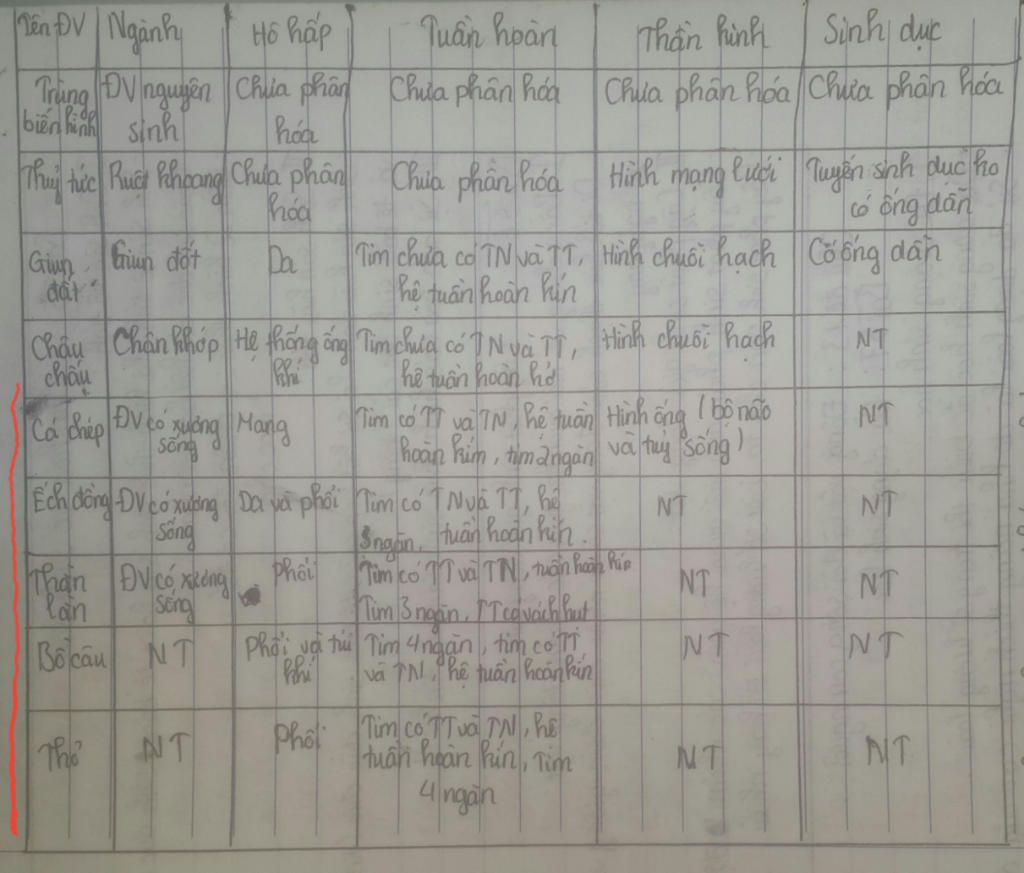 Tên ĐV Ngành Hô hấp Tuần hoàn Thần kinh Sinh dục
Trùng ĐV nguyên Chưa phân Chưa phân hóa Chưa phân hóa Chưa phân hóa
biến hình sinh hóa
Thuỷ tức Ruột khoang Chưa phân Chưa phân hóa Hình mạng lưới Tuyến sinh dục ko
hóa có ống dẫn
Giun Giun đốt Da Tim chưa có TN và TT, Hình chuỗi hạch Có ống dẫn
đất hệ tuần hoàn kín
Châu Chân khớp Hệ thống ống Tim chưa có TN và TT, Hình chuỗi hạch NT
chấu khí hệ tuần hoàn hở
Cá chép ĐV có xương Mang Tim có TT và TN, hệ tuần Hình ống (bộ não NT
sống hoàn kím, tim 2 ngăn và tuỷ sống)
Ếch đồng ĐV có xương Da và phổi Tim có TN và TT, hệ NT NT
sống 3 ngăn, tuần hoàn kín.
Thằn ĐV có xương Phổi Tim có TT và TN, tuần hoàn kín NT NT
lằn sống Tim 3 ngăn, TT có vách hụt
Bồ câu NT Phổi và túi Tim 4 ngăn, tim có TT NT NT
khí và TN, hệ tuần hoàn kín
Thỏ NT Phổi Tim có TT và TN, hệ NT NT
tuần hoàn kín, Tim
4 ngăn